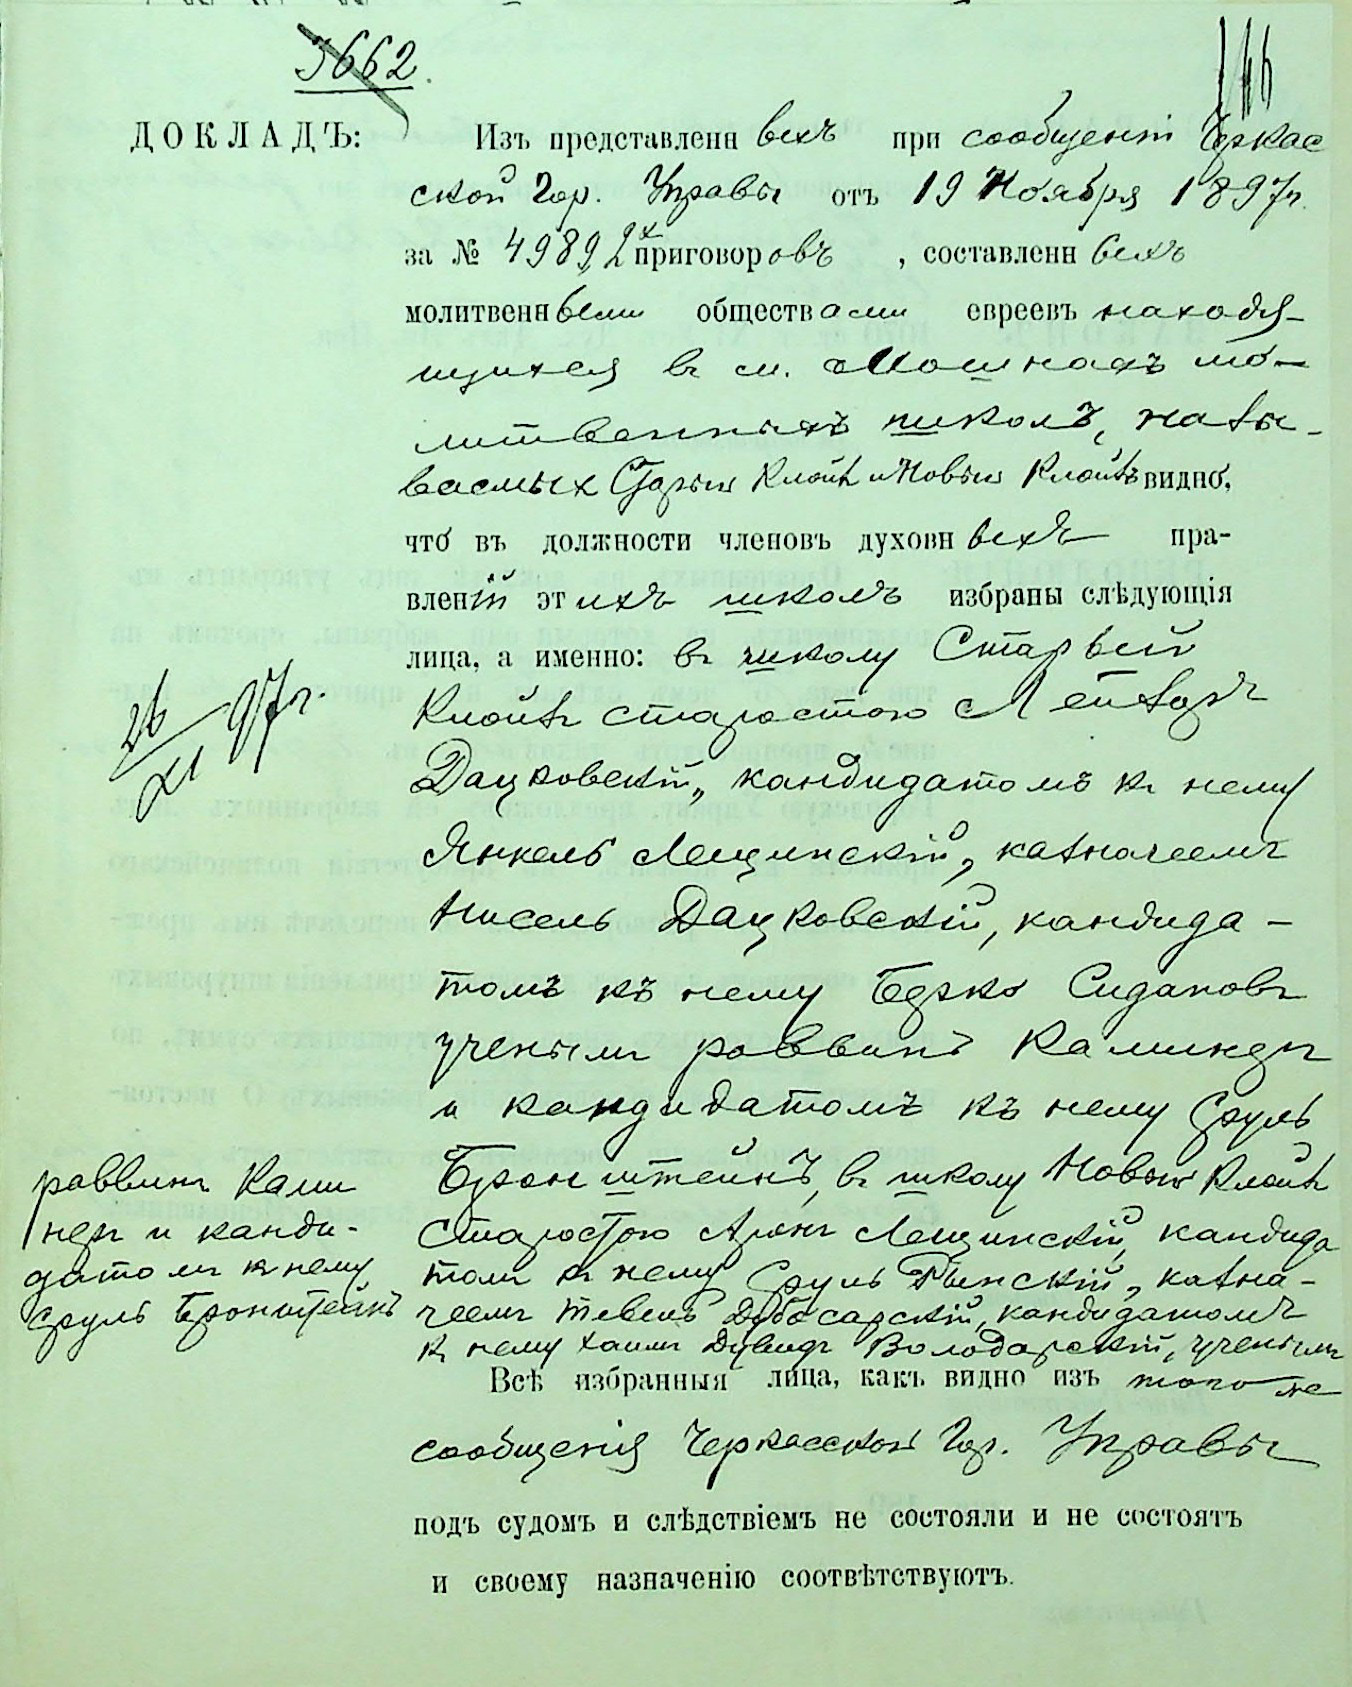 3662.
ДОКЛАДЪ:
Изъ представленныхъ при сообщеніи Черкас
ской Гор. Управы отъ 19 Ноября 1897 г.
за № 4989, 2х приговоровъ, составленныхъ
молитвенными обществами евреевъ находя-
щихся въ м. Мошнахъ мо-
литвенныхъ школъ, назы-
ваемых Старый Клойз и Новый Клойзъ видно,
что въ должности членовъ духовныхъ пра-
вленій этихъ школъ избраны слѣдующія
лица, а именно: въ школу Старый
Клойзъ старостою Лейзоръ
Дацковскій, кандидатомъ къ нему
Янкель Лещинскій, казначеемъ
Нисель Дацковскій, кандида-
томъ къ нему Берко Сидаковъ
ученымъ раввинъ Каминеръ
и кандидатомъ къ нему Сруль
Бронштейнъ, въ школу Новый Клойзъ
старостою Аронъ Лещинскій, кандида
томъ къ нему Сруль Рынскій, казна-
чеемъ Тевель Дубосарскій, кандидатомъ
къ нему Хаимъ Дувидъ Володарскій, ученымъ
раввинъ Ками
неръ и канди-
датомъ къ нему
Сруль Бронштейнъ
26/XI 97 г.
Всѣ избранныя лица, какъ видно изъ того же
сообщенія Черкасской Гор. Управы
подъ судомъ и слѣдствіемъ не состояли и не состоятъ
и своему назначенію соотвѣтствуютъ.